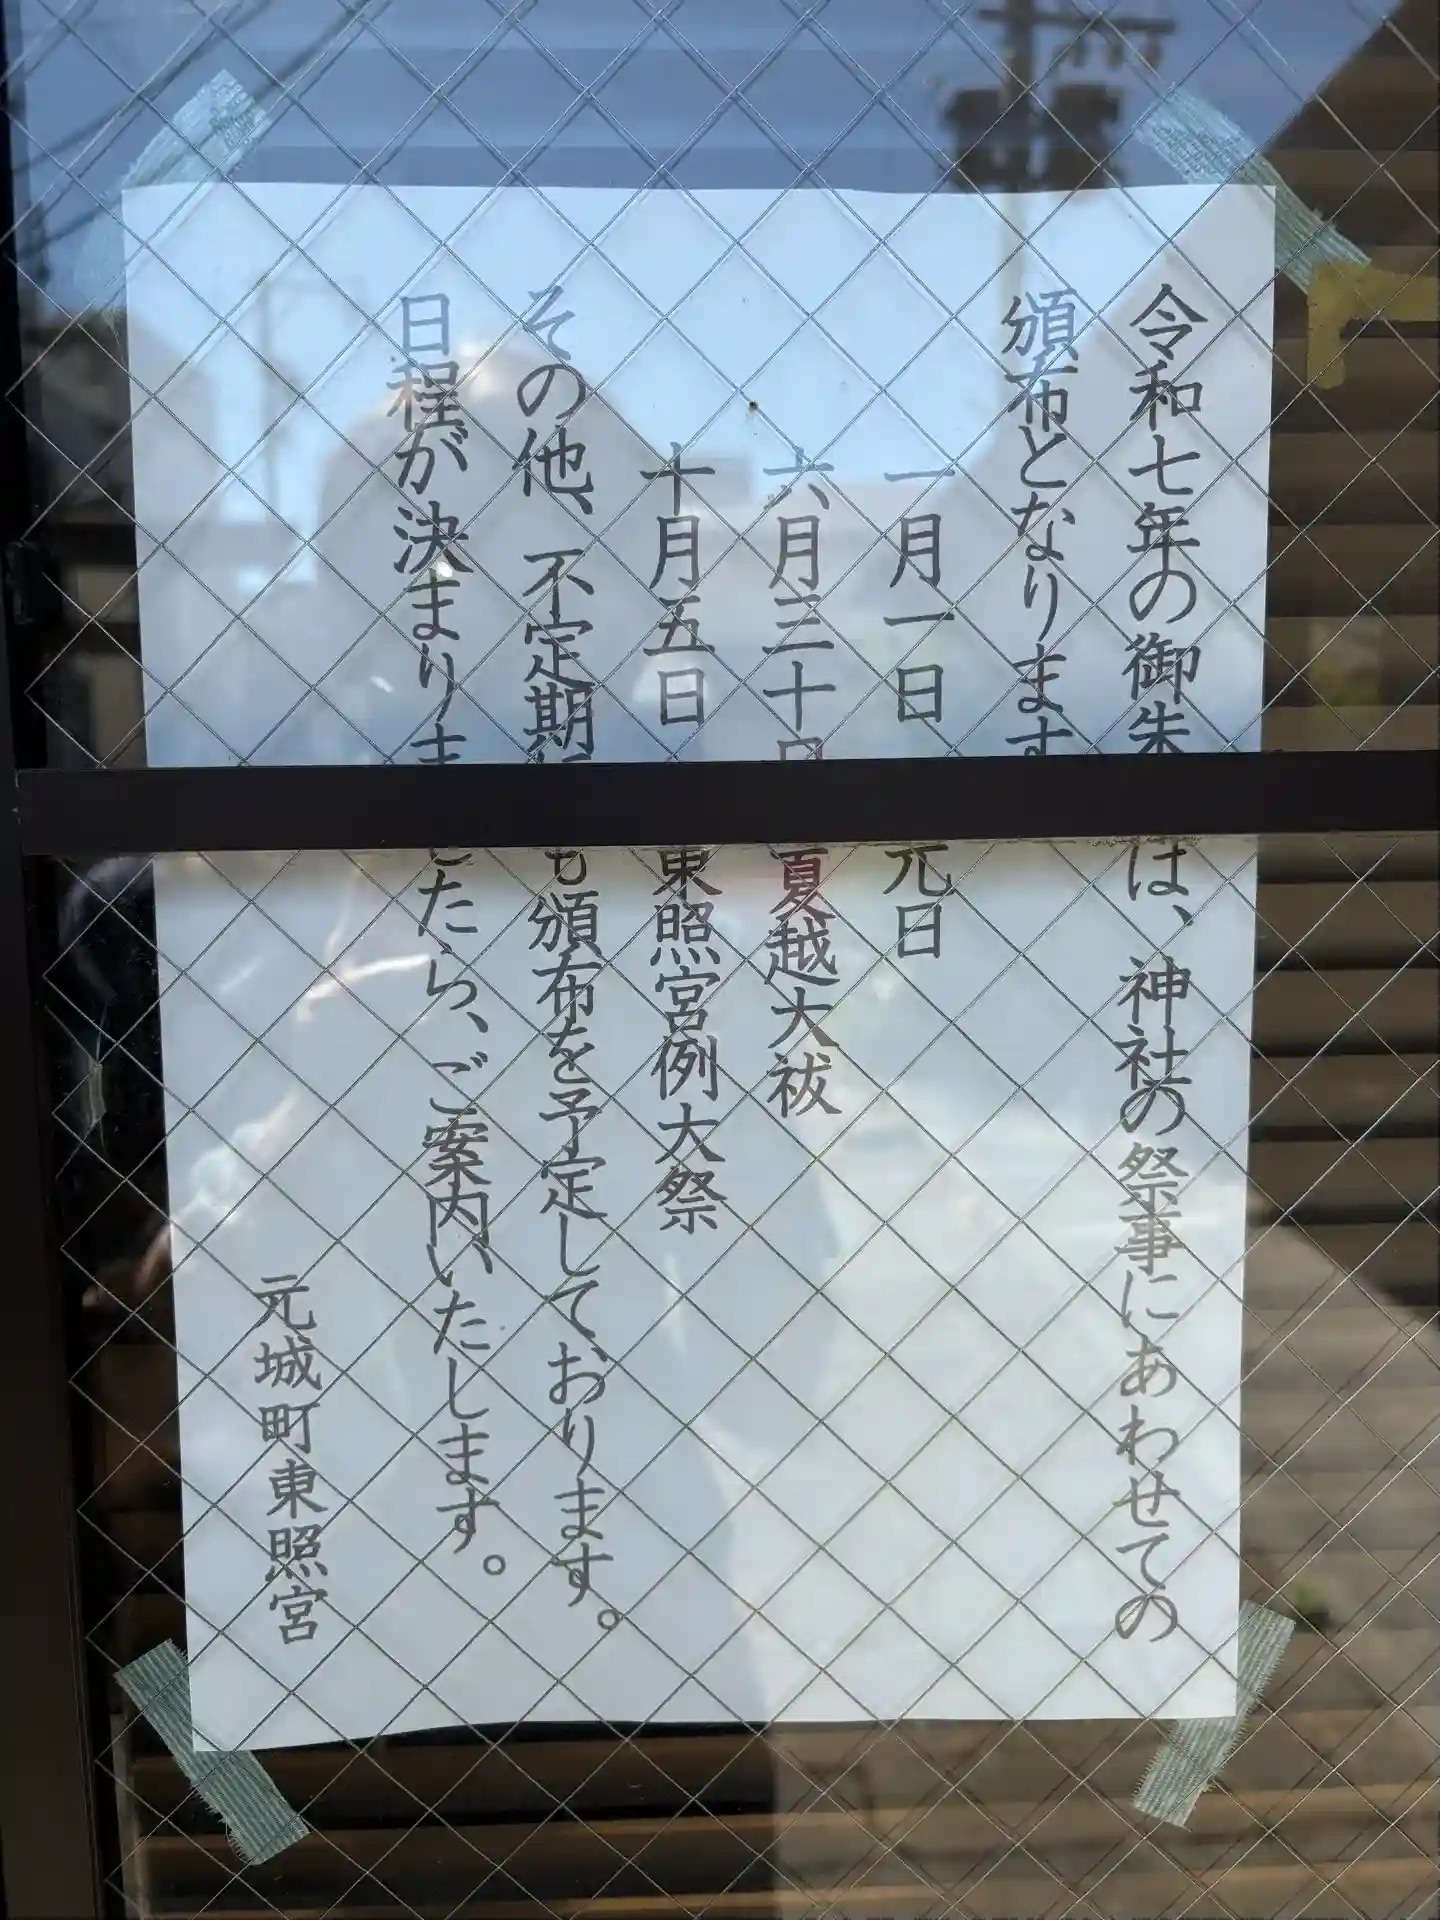 令和七年の御朱は、神社の祭事にあわせての
頒布となります
一月一日 元日
六月三十日 夏越大祓
十月五日 東照宮例大祭
その他、不定期にも頒布を予定して、おります。
日程が決まりましたら、ご案内いたします。
元城町東照宮